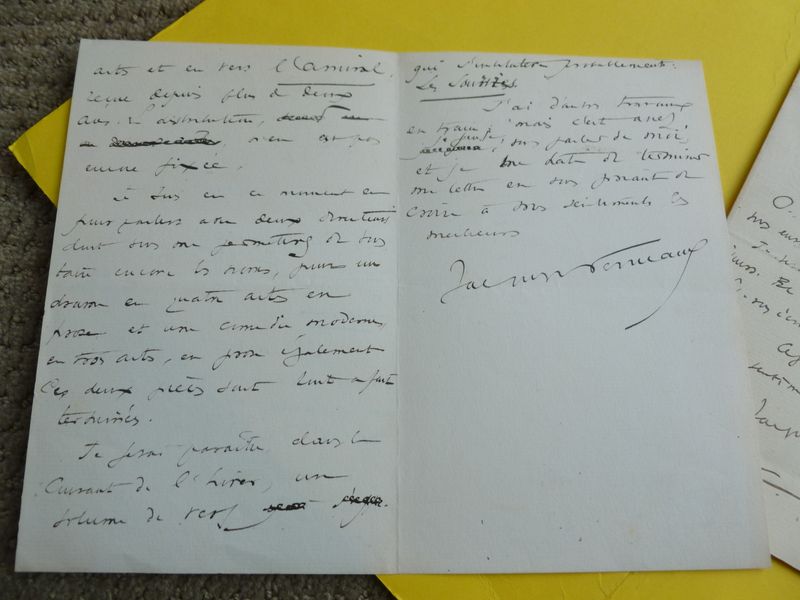 actes et en vers l'Amiral,
reçue depuis plus de deux
ans. La distribution,
n'en est pas
encore fixée.
Je suis en ce moment en
pourparlers avec deux directeurs
dont vous me permettrez de vous
taire encore les noms, pour un
drame en quatre actes en
prose et une comédie moderne,
en trois actes, en prose également
Ces deux pièces sont tout à fait
terminées.
Je ferai paraître, dans le
Courant de l'hiver, un
volume de vers
qui s'intitulera probablement:
Les
J'ai d'autres travaux
en train, mais c'est assez
je pense, vous parler de moi,
et je me hâte de terminer
ma lettre en vous priant de
croire à mes sentiments les
meilleurs
Jacques Normand